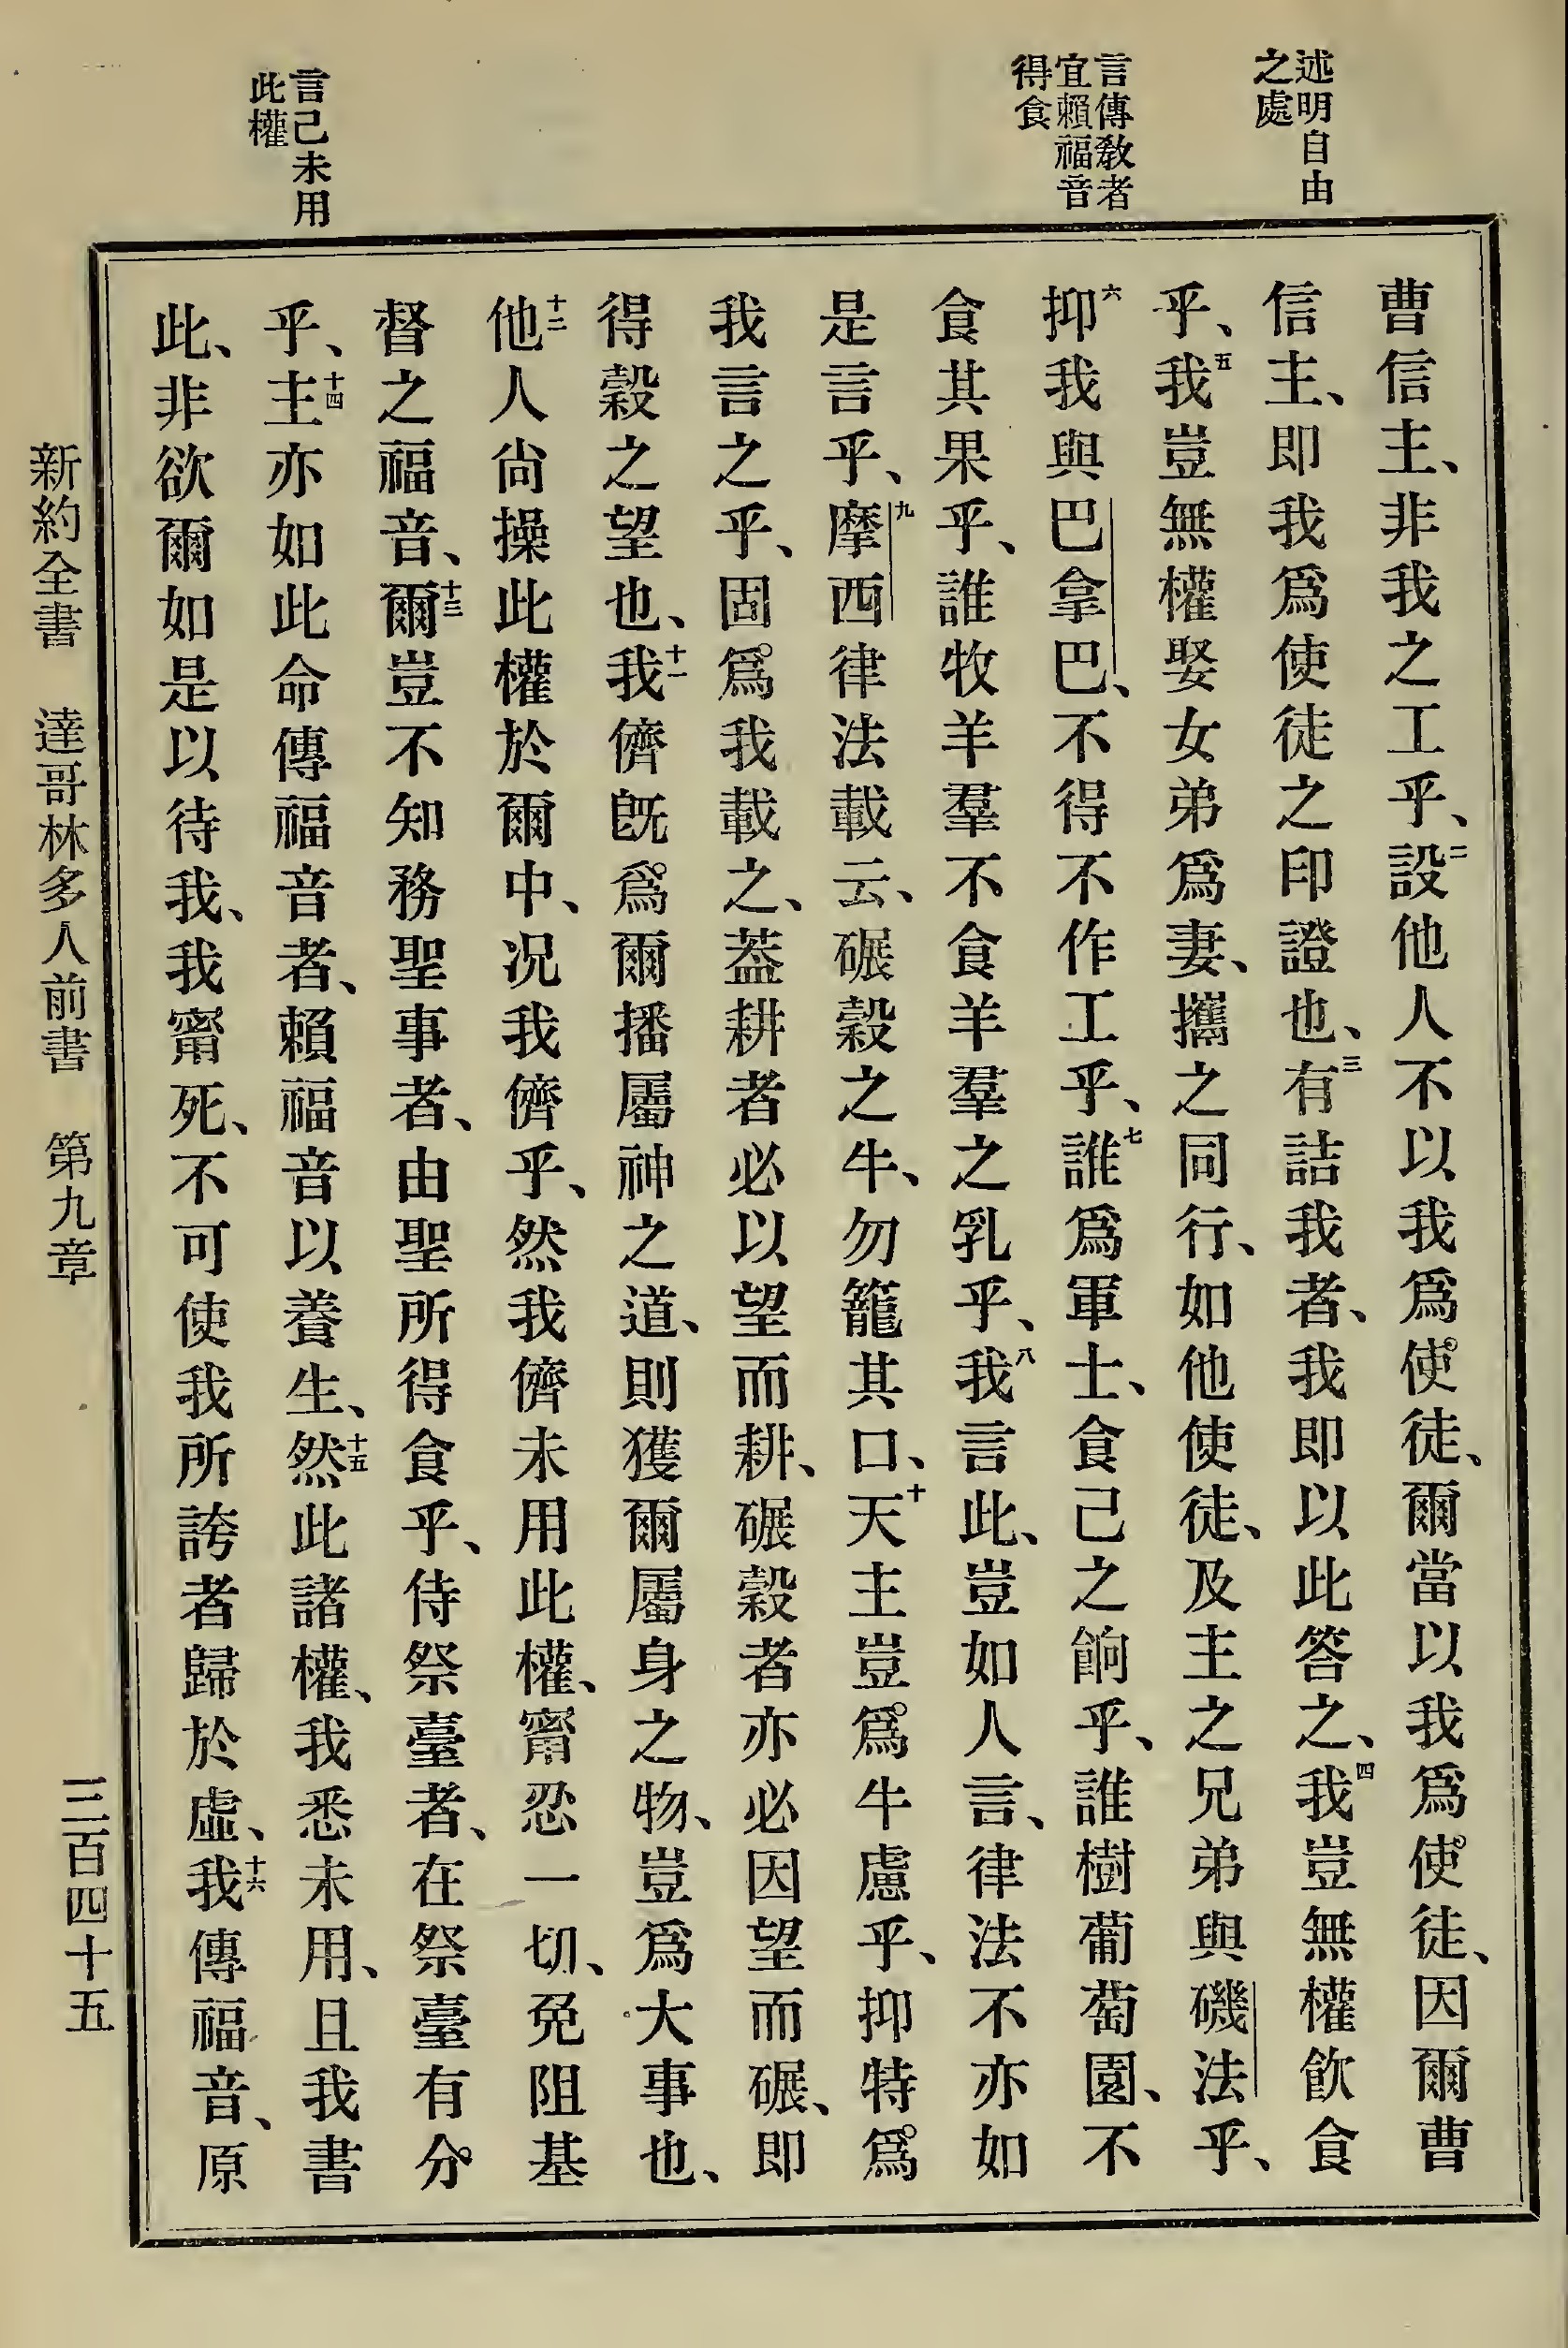 述明自由
之處
言傳教者
宜賴福音
得食
言己未用
此權
曹信主、非我之工乎、二設他人不以我爲使徒、爾當以我爲使徒、因爾曹
信主、即我爲使徒之印證也、三有詰我者、我即以此答之、四我豈無權飲食
乎、五我豈無權娶女弟爲妻、攜之同行、如他使徒、及主之兄弟與磯法乎、
六抑我與巴拿巴、不得不作工乎、七誰爲軍士、食己之餉乎、誰樹葡萄園、不
食其果乎、誰牧羊羣不食羊羣之乳乎、八我言此、豈如人言、律法不亦如
是言乎、九摩西律法載云、碾穀之牛、勿籠其口、十天主豈爲牛慮乎、抑特爲
我言之乎、固爲我載之、蓋耕者必以望而耕、碾穀者亦必因望而碾、即
得穀之望也、十一我儕旣爲爾播屬神之道、則獲爾屬身之物、豈爲大事也、
十二他人尙操此權於爾中、况我儕乎、然我儕未用此權、甯忍一切、免阻基
督之福音、十三爾豈不知務聖事者、由聖所得食乎、侍祭臺者、在祭臺有分
乎、十四主亦如此命傳福音者、賴福音以養生、十五然此諸權、我悉未用、且我書
此、非欲爾如是以待我、我甯死、不可使我所誇者歸於虛、十六我傳福音、原
新約全書 達哥林多人前書 第九章 三百四十五